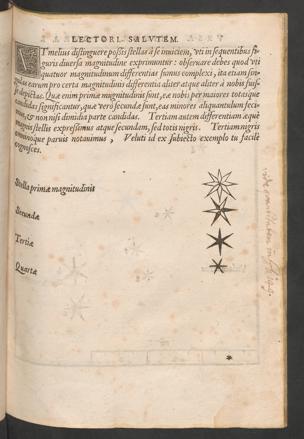 LECTORI SALVTEM.
VT melius distinguere possis stellas à se inuicem, vti in sequentibus fi-
guris diuersa magnitudine exprimuntur: obseruare debes quod vti
quatuor magnitudinum differentias sumus complexi, ita etiam sin-
gulas earum pro certa magnitudinis differentia aliter atque aliter à nobis fuis-
se depictas. Quæ enim primæ magnitudinis sunt, eæ nobis per maiores totasque
candidas significantur, quæ verò secundæ sunt, eas minores aliquantulum feci-
mus, & non nisi dimidia parte candidas. Tertiam autem differentiam æquè
magnis stellis expressimus atque secundam, sed totis nigris.
omninoque paruis notauimus, Veluti id ex subiecto exemplo tu facilè
cognosces.
Stella primæ magnitudinis
Secundæ
Tertiæ
Quartæ